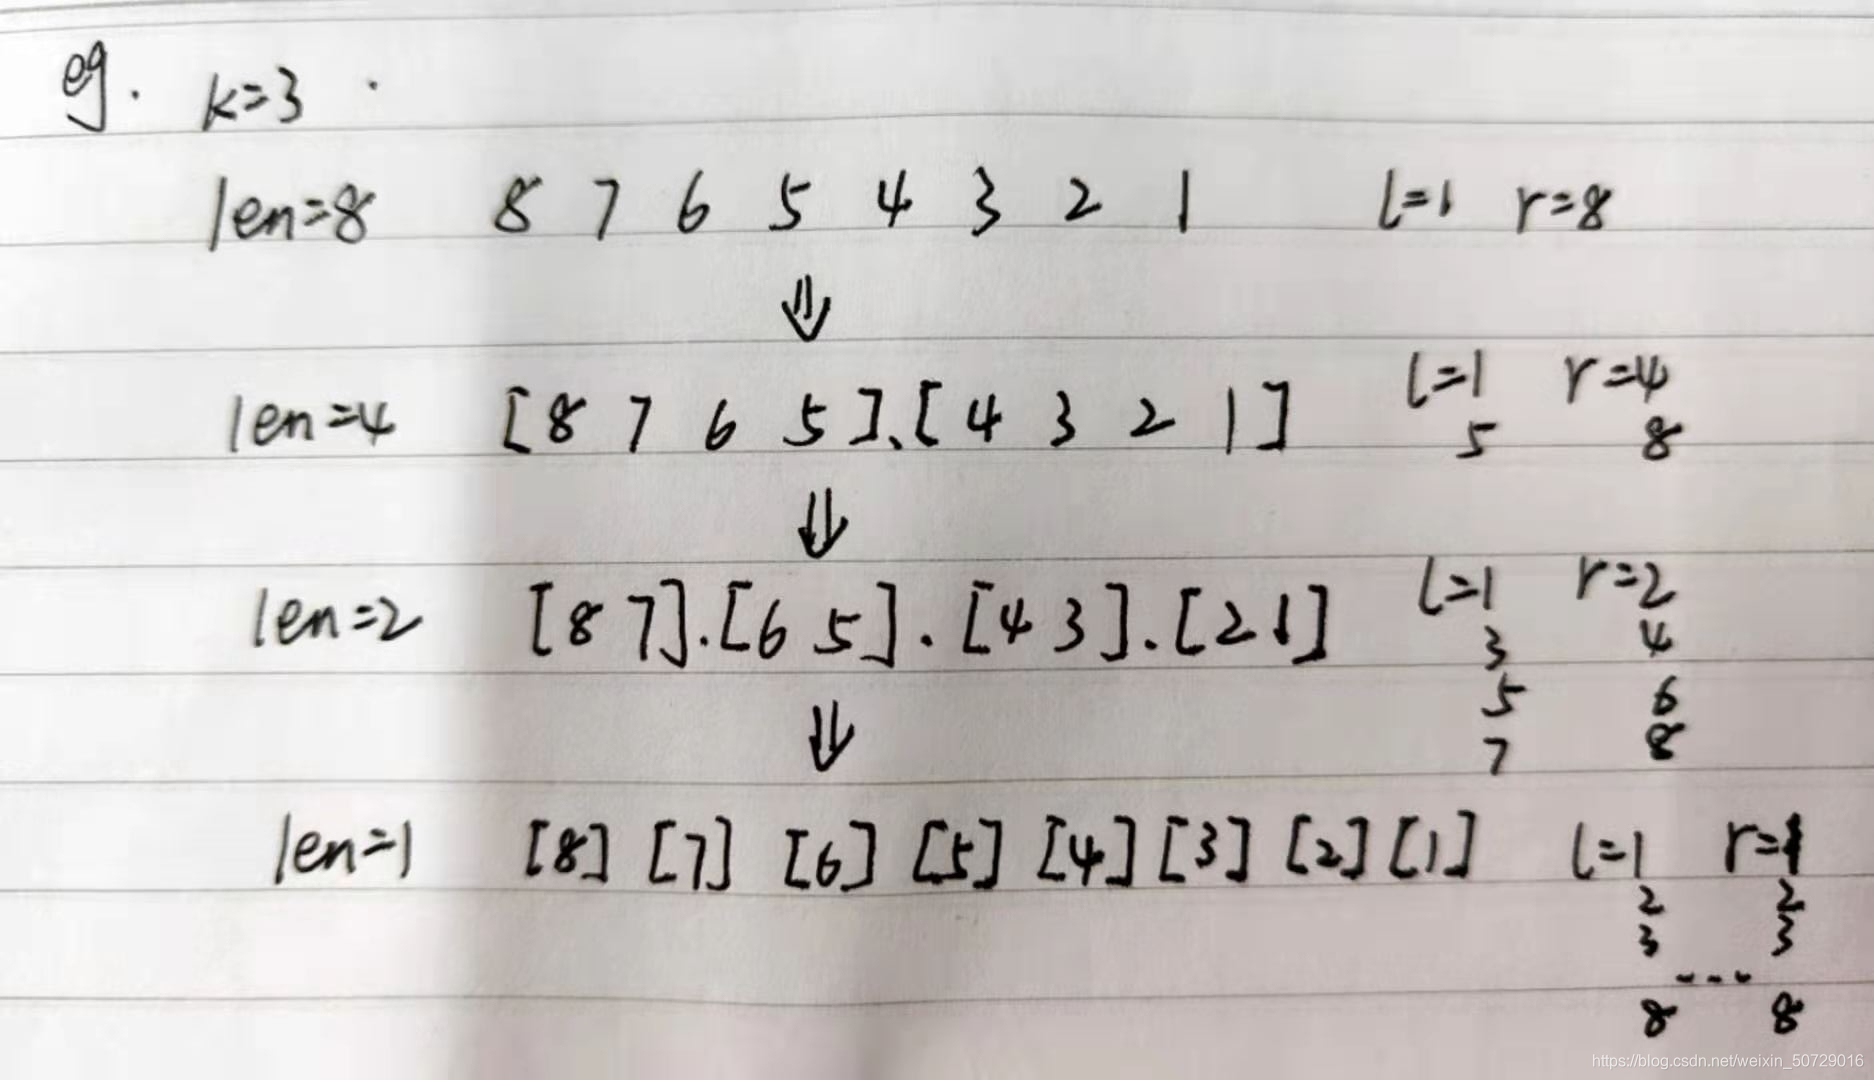 eg. k=3 .
len=8 8 7 6 5 4 3 2 1 l=1 r=8
⇓
len=4 [8 7 6 5]、[4 3 2 1] l=1 r=4
5 8
⇓
len=2 [8 7].[6 5].[4 3].[2 1] l=1 r=2
3 4
⇓ 5 6
7 8
len=1 [8] [7] [6] [5] [4] [3] [2] [1] l=1 r=1
2 2
3 3
...
8 8
https://blog.csdn.net/weixin_50729016